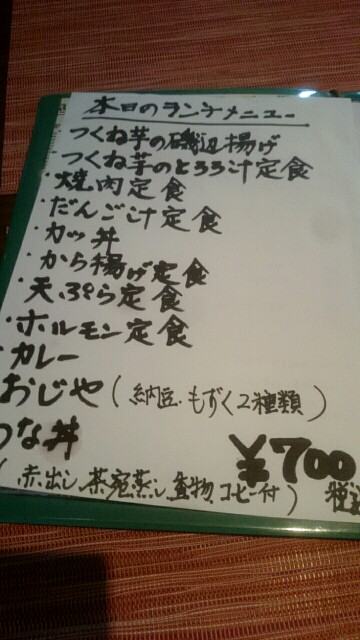 本日のランチメニュー
つくね芋の磯辺揚げ
つくね芋のとろろ汁定食
・焼肉定食
・だんご汁定食
・カツ丼
・から揚げ定食
・天ぷら定食
・ホルモン定食
・カレー
おじや(納豆・もずく2種類)
つな丼
¥700
(赤出し 茶碗蒸し 煮物 コーヒー付) 税込